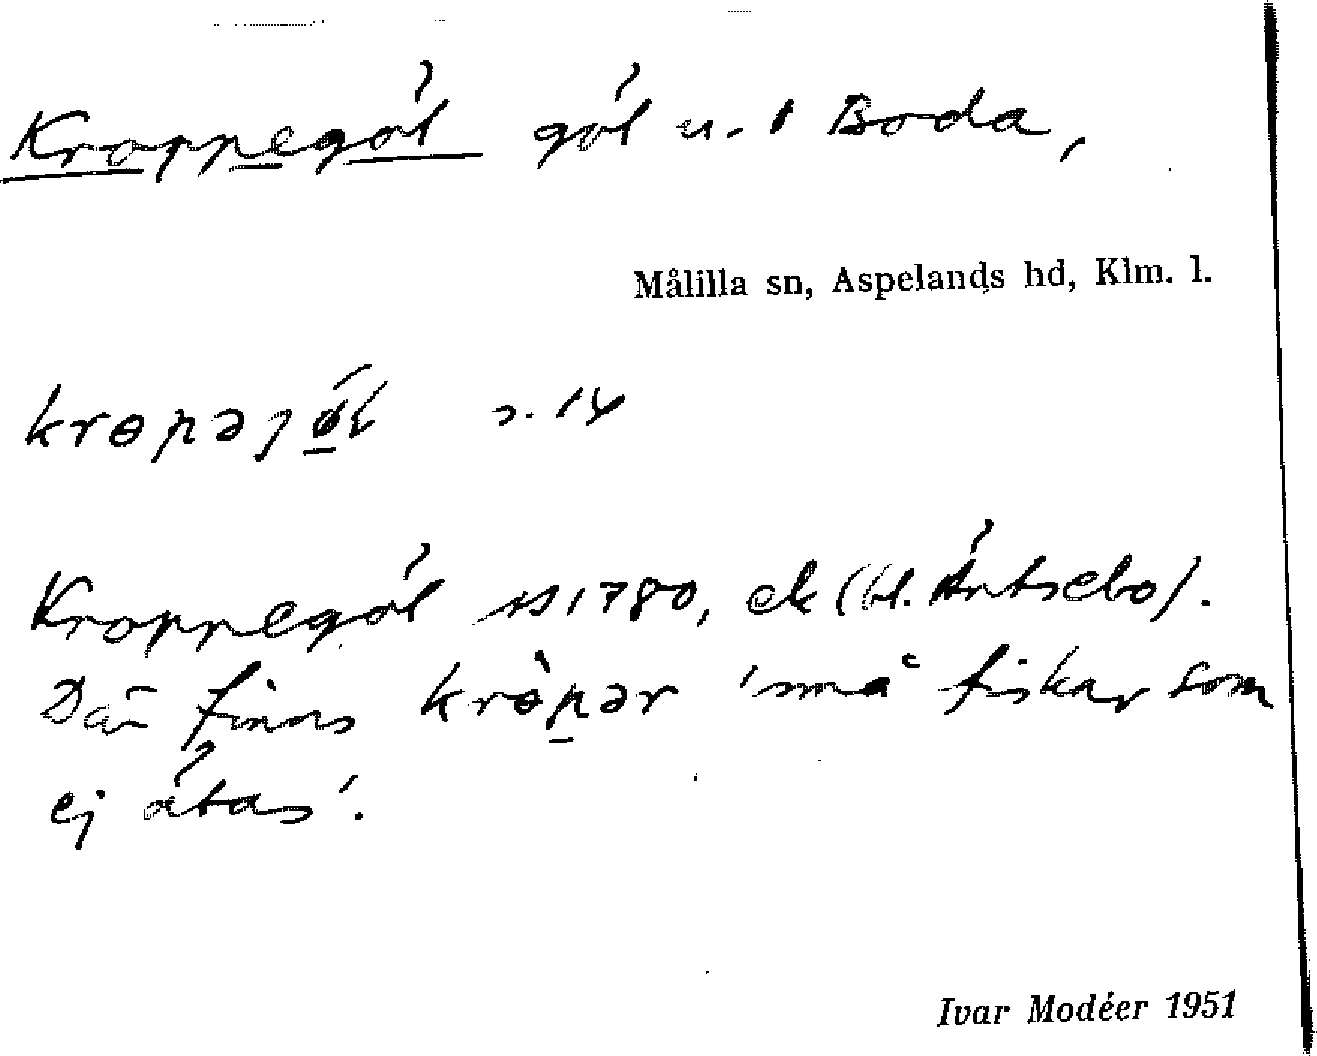 Kroppegöl göl u. Boda,
Målilla sn, Aspelands hd, Klm. l.
s. 14
Kroppegöl 1780, ek (bl. Årtsebo).
Där finns krɵ̀pər 'små fiskar som
ej ätas'.
Ivar Modéer 1951